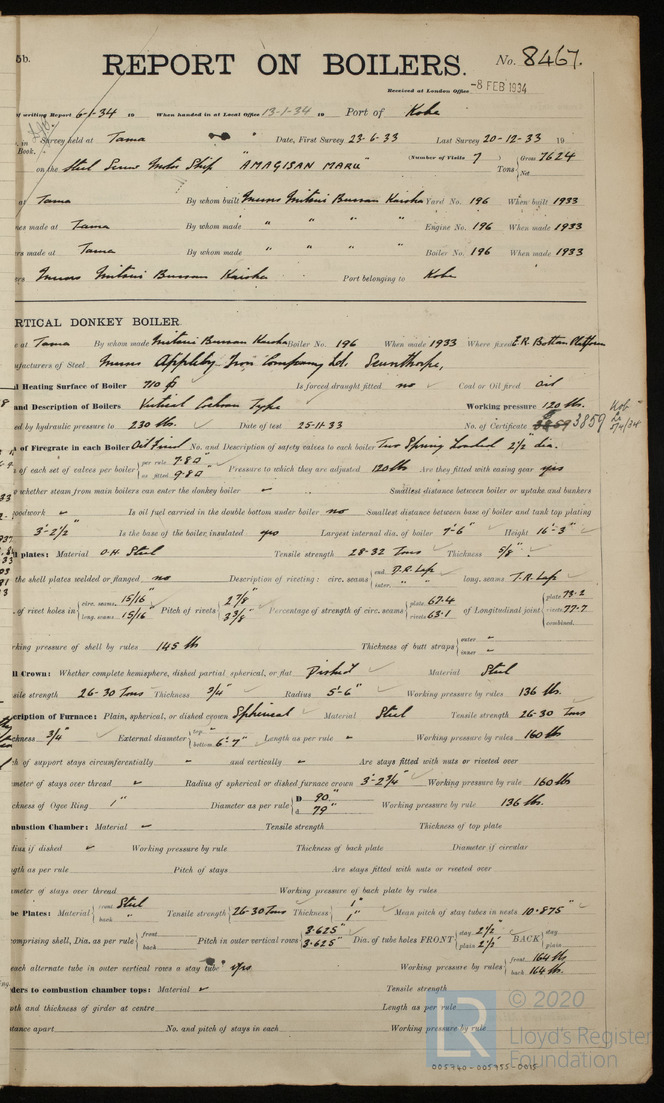 5b.
REPORT ON BOILERS.
No. 8467.
Received at London Office -8 FEB 1934
of writing Report 6-1-34 19 When handed in at Local Office 13-1-34 19 Port of Kobe
in Survey held at Tama Date, First Survey 23-6-33 Last Survey 20-12-33 19
Book.
on the Steel Screw Motor Ship "AMAGISAN MARU" (Number of Visits 7) Tons { Gross 7624
Net
at Tama By whom built Messrs Mitsui Bussan Kaisha Yard No. 196 When built 1933
nes made at Tama By whom made " " " " Engine No. 196 When made 1933
ers made at Tama By whom made " " " " Boiler No. 196 When made 1933
ers Messrs Mitsui Bussan Kaisha Port belonging to Kobe
RTICAL DONKEY BOILER
e at Tama By whom made Mitsui Bussan Kaisha Boiler No. 196 When made 1933 Where fixed E.R. Bottom Platform
ufacturers of Steel Messrs Appleby-Iron Company Ltd. Scunthorpe,
l Heating Surface of Boiler 710 Is forced draught fitted no Coal or Oil fired Oil
and Description of Boilers Vertical Cochran Type Working pressure 120 lbs.
ed by hydraulic pressure to 230 lbs. Date of test 25-11-33 No. of Certificate 3859 3859 Kob
5/4/34
a of Firegrate in each Boiler Oil Fired No. and Description of safety valves to each boiler Two Spring Loaded 2½ dia.
a of each set of valves per boiler { per rule 7.8 as fitted 9.8 Pressure to which they are adjusted 120 lbs Are they fitted with easing gear yes
whether steam from main boilers can enter the donkey boiler Smallest distance between boiler or uptake and bunkers
oodwork Is oil fuel carried in the double bottom under boiler no Smallest distance between base of boiler and tank top plating
3'-2½" Is the base of the boiler insulated yes Largest internal dia. of boiler 7'-6" Height 16'-3"
l plates: Material O.H. Steel Tensile strength 28-32 Tons Thickness 5/8"
the shell plates welded or flanged no Description of riveting: circ. seams { end D.R. Lap inter. " " long. seams T.R. Lap
. of rivet holes in { circ. seams 15/16" long. seams 15/16" Pitch of rivets { 2 7/8" 3 3/8" Percentage of strength of circ. seams { plate 67.4 rivets 63.1 of Longitudinal joint { plate 73.2 rivets 77.7 combined
rking pressure of shell by rules 145 lbs Thickness of butt straps { outer inner
ll Crown: Whether complete hemisphere, dished partial spherical, or flat Dished Material Steel
sile strength 26-30 Tons Thickness 3/4" Radius 5'-6" Working pressure by rules 136 lbs.
cription of Furnace: Plain, spherical, or dished crown Spherical Material Steel Tensile strength 26-30 Tons
ckness 3/4" External diameter { top bottom 6'-7" Length as per rule Working pressure by rules 160 lbs
h of support stays circumferentially and vertically Are stays fitted with nuts or riveted over
meter of stays over thread Radius of spherical or dished furnace crown 3'-2¾" Working pressure by rule 160 lbs
ckness of Ogee Ring 1" Diameter as per rule { D 90" d 79" Working pressure by rule 136 lbs.
mbustion Chamber: Material Tensile strength Thickness of top plate
dius if dished Working pressure by rule Thickness of back plate Diameter if circular
gth as per rule Pitch of stays Are stays fitted with nuts or riveted over
ameter of stays over thread Working pressure of back plate by rules
be Plates: Material { front Steel back " Tensile strength { 26-30 Tons Thickness { 1" 1" Mean pitch of stay tubes in nests 10.875"
omprising shell, Dia. as per rule { front back Pitch in outer vertical rows { 3.625" 3.625" Dia. of tube holes FRONT { stay 2½" plain 2½" BACK { stay plain
each alternate tube in outer vertical rows a stay tube yes Working pressure by rules { front 164 lbs. back 164 lbs.
ders to combustion chamber tops: Material Tensile strength
pth and thickness of girder at centre Length as per rule
stance apart No. and pitch of stays in each Working pressure by rule
LR © 2020
Lloyd's Register
Foundation
005740-005755-0015